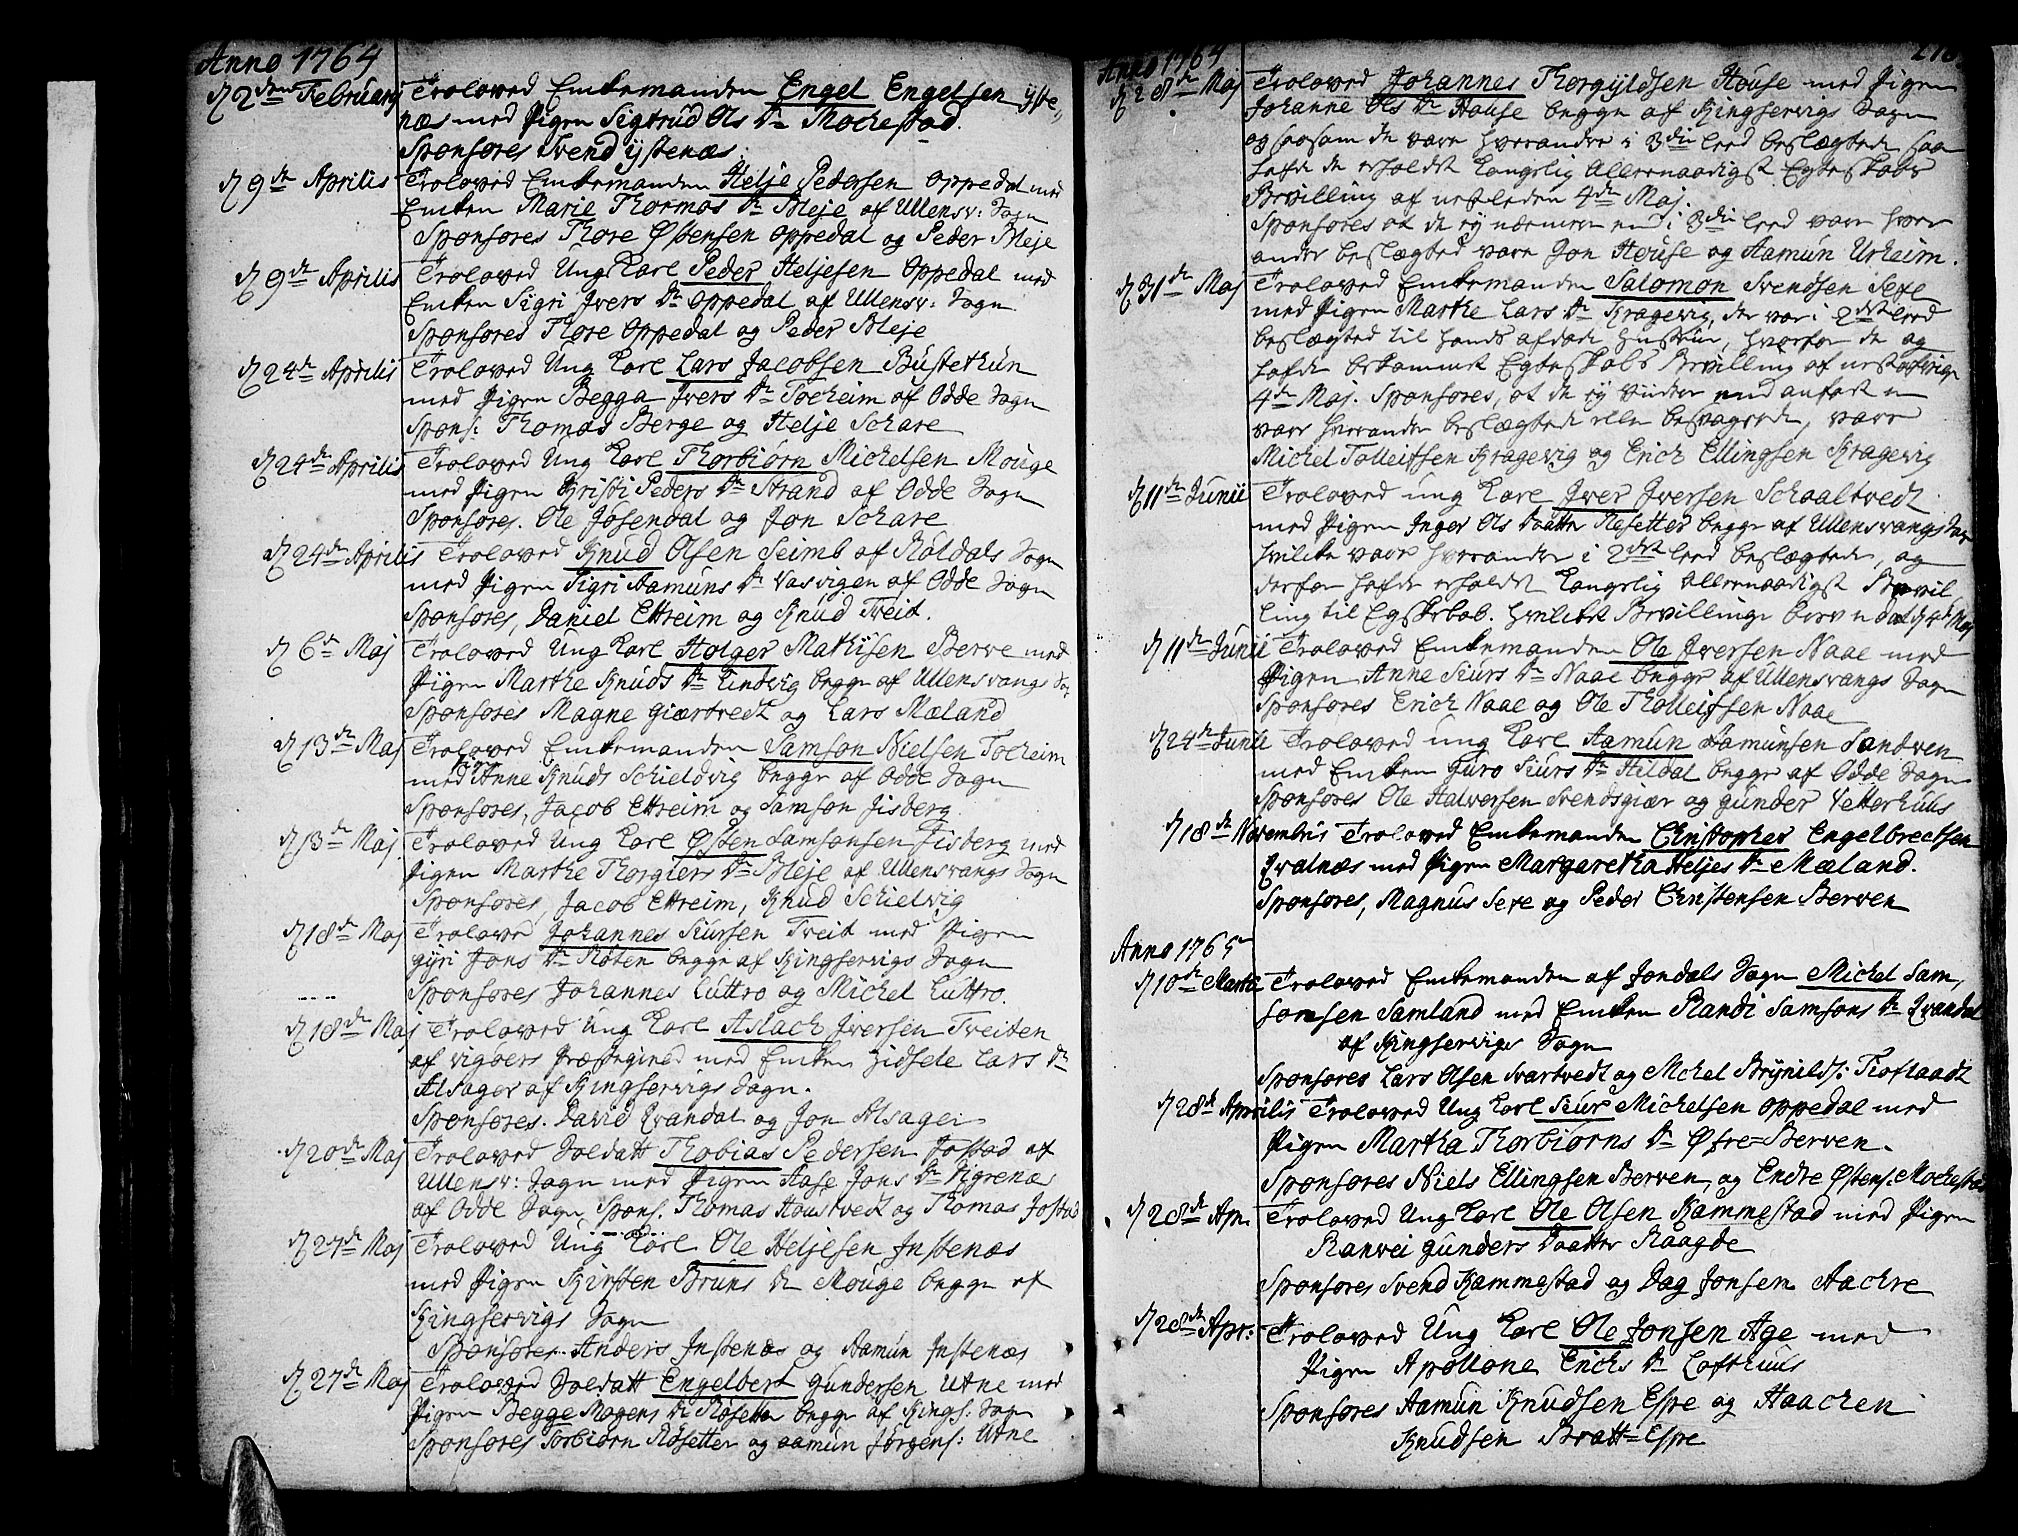 Anno 1764
d 2den Februarij Troloved Enkemanden Engel Engelsen yste,,
næs med Pigen Sigtrud Ols Dr Mochestad.
Sponsores Svend ystenæs.
d 9de Aprilis Troloved Enkemanden Helje Pedersen Oppedal med
Enken Marie Thormos Dr Bleje af Ullensv: Sogn
Sponsores Thore Østensen oppedal og Peder Bleje
d 9de Aprilis Troloved Ung Karl Peder Heljesen Oppedal med
Enken Sigri Ivers Dr Oppedal af Ullensv: Sogn
Sponsores Thore Oppedal og Peder Bleje
d 24de Aprilis Troloved Ung Karl Lars Jacobsen Bustethun
med Pigen Begga Ivers Dr Tocheim af Odde Sogn
Spons: Thomas Berge og Helje Schare
d 24de Aprilis Troloved Ung Karl Thorbiørn Michelsen Mouge
med Pigen Kristi Peders Dr Strand af Odde Sogn
Sponsores. Ole Josendal og Jon Schare
d 24de Aprilis Troloved Knud Olsen Seimb af Røldals Sogn
med Pigen Sigri Aamuns Dr Vasvigen af Odde Sogn
Sponsores, Daniel Ettreim og Knud Treit.
d 6de Maj Troloved Ung Karl Holger Mathisen Berve med
Pigen Marthe Knuds Dr Lindvig begge af Ullensvangs Sog
Sponsores Magne Giærtvedt og Lars Mæland
d 13de Maj Troloved Enkemanden Samson Nielsen Tocheim
med Anne Knuds Schieldvig begge af Odde Sogn
Sponsores, Jacob Ettreim og Samson Fisberg
d 13de Maj Troloved Ung Karl Østen Samsonsen Fisberg med
Pigen Marthe Thorgiers Dr Bleje af Ullensvangs Sogn
Sponsores, Jacob Ettreim, Knud Schielvig
d 18de Maj Troloved Johannes Siursen Treit med Pigen
gyri Jons Dr Røten begge af Kingservigs Sogn
Sponsores Johannes Luttro og Michel Luttro.
d 18de Maj Troloved Ung Karl Aslach Iversen Treiten
af vigøers Præstegield med Enken Zidsele Lars Dr
Alsager af Kingservigs Sogn.
Sponsores. David Qvandal og Jon Alsager
d 20de Maj Troloved Soldatt Thobias Pedersen Jostad af
Ullensv: Sogn med Pigen Aase Jons Dr Digrenæs
af Odde Sogn Spons. Thomas Houstvedt og Thomas Jostad
d 27de Maj Troloved Ung Karl Ole Heljesen Instenæs
med Pigen Kirsten Bruns Dr Mouge begge af
Kingservigs Sogn
Sponsores. Anders Instenæs og Aamun Instenæs
d 27de Maj Troloved Soldatt Engelbert Gundersen Utne med
Pigen Begge Mogens Dr Røsetter begge af Kings: Sogn
Sponsores Torbiørn Røsetter og aamun Jørgens: Utne
Anno 1764
d 28de Maj Troloved Johannes Thorgyldsen House med Pigen
Johanne Ols Dr House begge af Kingservigs Sogn
og saasom de vare hverandre i 3die leed beslægtede saa
hafde de erholdt Kongelig Allernaadigst Egteskabs
Bevilling af nestleden 4de Maj.
Sponsores at de ey nærmere end i 3die leed vare hver
ander beslægted vare Jon House og Aamun Urheim.
d 31de Maj Troloved Enkemanden Salomon Svendsen Sexe
med Pigen Marthe Lars Dr Kragevig, der var i 2det leed
beslægted til hands afdøde Hustrue, hvorfor de og
hafde bekommet Egteskabs Bevilling af nestafvigte
4de Maj. Sponsores, at de ey viidere end anført er
vare hverander beslægtede eller besvogrede, vare
Michel Tolleifsen Kragevig og Erich Ellingsen Kragevig
d 11de Junii Troloved ung Karl Iver Iversen Schaaltvedt
med Pigen Inger Ols Daatter Røsetter begge af Ullensvangs Sogn
hvilke vare hverander i 2det leed beslægtede, og
derfor hafde erholdet Kongelig Allernaadigst Bevil
ling til Egteskab. hvilcke Bevillinge dat d 4de Maj
d 11de Junii Troloved Enkemanden Ole Iversen Naae med
Pigen Anne Siurs Dr Naae begge af Ullensvangs Sogn
Sponsores Erich Naae og Ole Tholleifsen Naae
d 24de Junii Troloved ung Karl Aamun Samunsen Sandven
med Enken Guro Siurs Dr Hildal begge af Odde Sogn
Sponsores Ole Halversen Svendsgiær og gunder Vetterhuus
d 18de Novembris Troloved Enkemanden Christopher Engelbrectsen
Qvalnæs med Pigen Margaretha Heljes Dr Mæland.
Sponsores, Magnus Sexe og Peder Christensen Berven
Anno 1765
d 10de Martii Troloved Enkemanden af Jondals Sogn Michel Sam,
sonsen Samland med Enken Randi Samsons Dr Qvandal
af Kingservigs Sogn
Sponsores Lars Olsen Svartvedt og Michel Brynilds: Tioflaadt
d 28de Aprilis Troloved Ung Karl Siur Michelsen Oppedal med
Pigen Martha Thorbiørns Dr Øfre=Berven.
Sponsores Niels Ellingsen Berven og Endre Østens. Mochestad
d 28de Apr. Troloved Ung Karl Ole Olsen Hammestad med Pigen
Ranvei Gunders Daatter Raagde
Sponsores Svend Hammestad og Dag Jonsen Aachre
d 28de Apr: Troloved Ung Karl Ole Jonsen Age med
Pigen Apollone Erichs Dr Lofthuus
Sponsores Aamun Knudsen Espe og Haachen
Knudsen Bratt=Espe